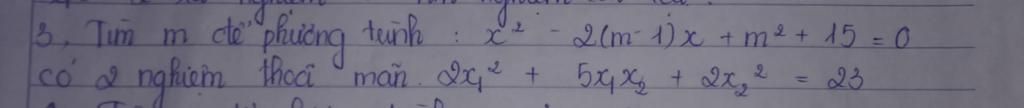 3, Tìm m để phương trình : x² - 2(m-1)x + m² + 15 = 0
có 2 nghiệm thoả mãn. 2x₁² + 5x₁x₂ + 2x₂² = 23